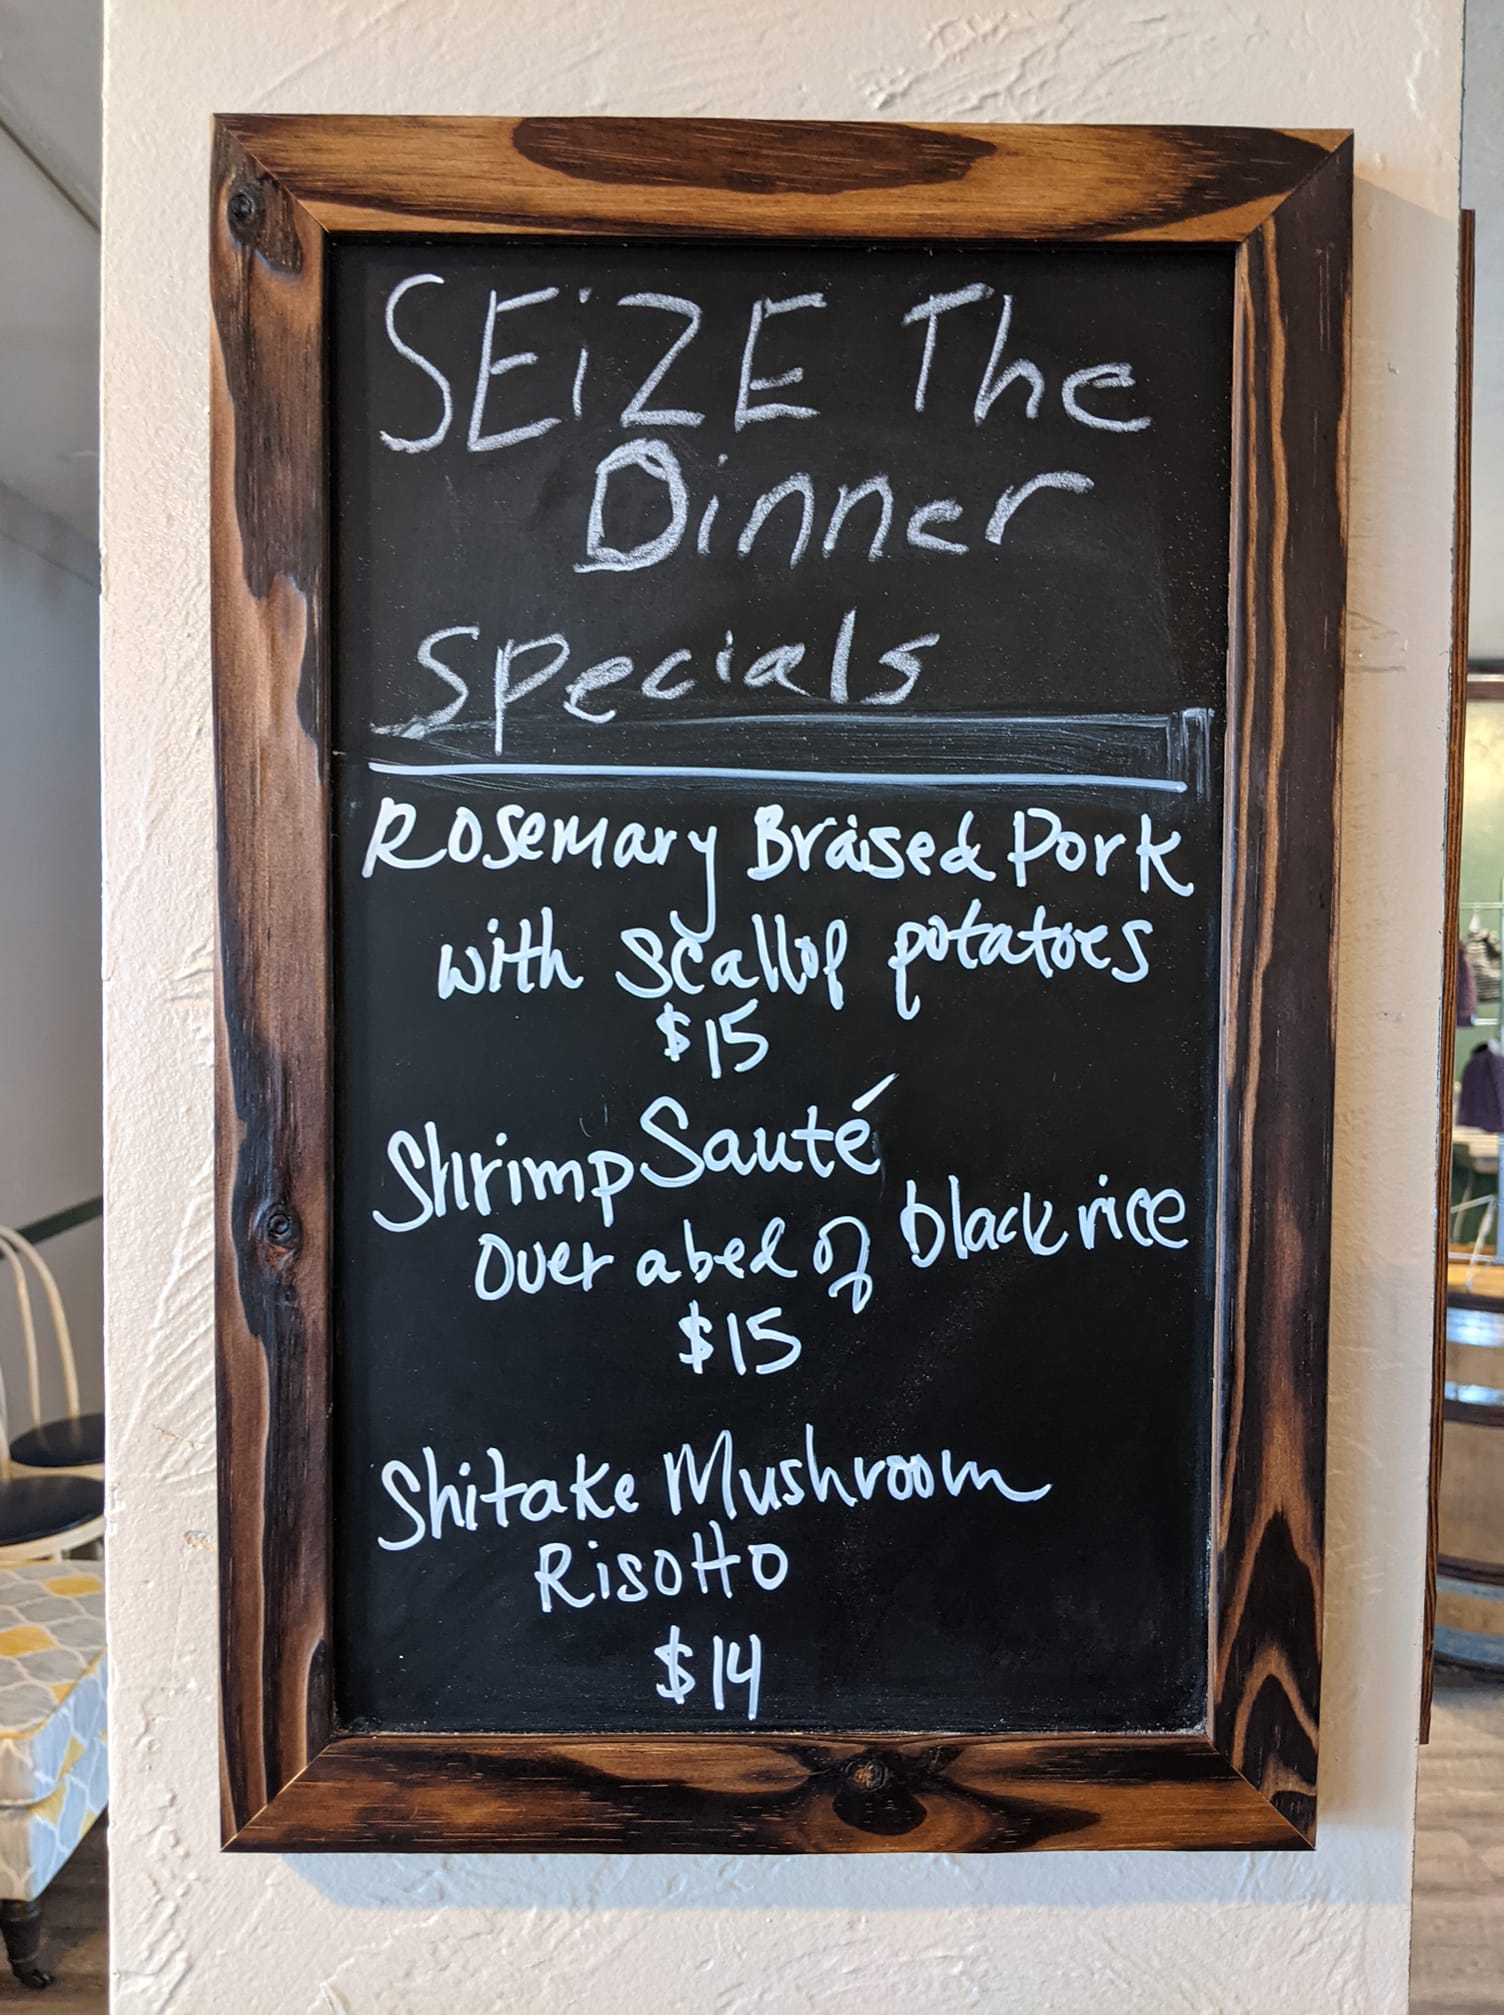 SEiZE The
Dinner
Specials
Rosemary Braised Pork
with Scallop potatoes
$15
Shrimp Sauté
Over a bed of black rice
$15
Shitake Mushroom
Risotto
$14